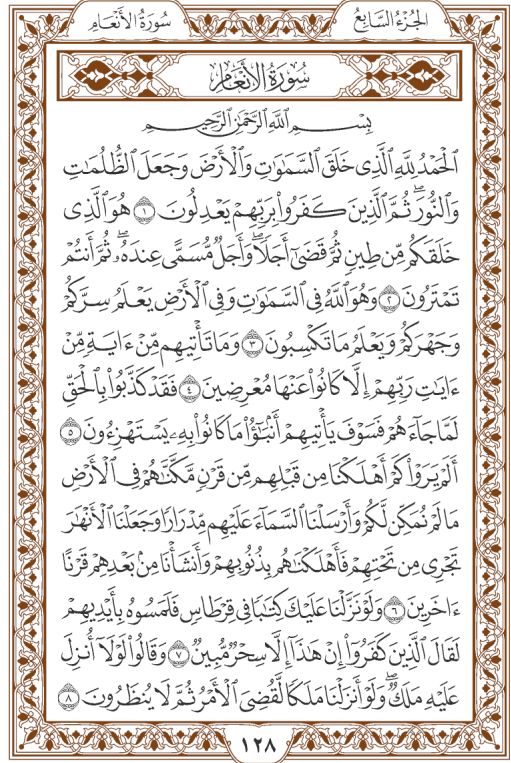 الجزء السابع
سورة الأنعام
سُورَةُ الأَنْعَام
بِسْمِ ٱللَّهِ ٱلرَّحْمَٰنِ ٱلرَّحِيمِ
ٱلْحَمْدُ لِلَّهِ ٱلَّذِى خَلَقَ ٱلسَّمَٰوَٰتِ وَٱلْأَرْضَ وَجَعَلَ ٱلظُّلُمَٰتِ
وَٱلنُّورَ ۖ ثُمَّ ٱلَّذِينَ كَفَرُوا۟ بِرَبِّهِمْ يَعْدِلُونَ ١ هُوَ ٱلَّذِى
خَلَقَكُم مِّن طِينٍ ثُمَّ قَضَىٰٓ أَجَلًا ۖ وَأَجَلٌ مُّسَمًّى عِندَهُۥ ۖ ثُمَّ أَنتُمْ
تَمْتَرُونَ ٢ وَهُوَ ٱللَّهُ فِى ٱلسَّمَٰوَٰتِ وَفِى ٱلْأَرْضِ يَعْلَمُ سِرَّكُمْ
وَجَهْرَكُمْ وَيَعْلَمُ مَا تَكْسِبُونَ ٣ وَمَا تَأْتِيهِم مِّنْ ءَايَةٍ مِّنْ
ءَايَٰتِ رَبِّهِمْ إِلَّا كَانُوا۟ عَنْهَا مُعْرِضِينَ ٤ فَقَدْ كَذَّبُوا۟ بِٱلْحَقِّ
لَمَّا جَآءَهُمْ فَسَوْفَ يَأْتِيهِمْ أَنۢبَٰٓؤُا۟ مَا كَانُوا۟ بِهِۦ يَسْتَهْزِءُونَ ٥
أَلَمْ يَرَوْا۟ كَمْ أَهْلَكْنَا مِن قَبْلِهِم مِّن قَرْنٍ مَّكَّنَّٰهُمْ فِى ٱلْأَرْضِ
مَا لَمْ نُمَكِّن لَّكُمْ وَأَرْسَلْنَا ٱلسَّمَآءَ عَلَيْهِم مِّدْرَارًا وَجَعَلْنَا ٱلْأَنْهَٰرَ
تَجْرِى مِن تَحْتِهِمْ فَأَهْلَكْنَٰهُم بِذُنُوبِهِمْ وَأَنشَأْنَا مِنۢ بَعْدِهِمْ قَرْنًا
ءَاخَرِينَ ٦ وَلَوْ نَزَّلْنَا عَلَيْكَ كِتَٰبًا فِى قِرْطَاسٍ فَلَمَسُوهُ بِأَيْدِيهِمْ
لَقَالَ ٱلَّذِينَ كَفَرُوٓا۟ إِنْ هَٰذَآ إِلَّا سِحْرٌ مُّبِينٌ ٧ وَقَالُوا۟ لَوْلَآ أُنزِلَ
عَلَيْهِ مَلَكٌ ۖ وَلَوْ أَنزَلْنَا مَلَكًا لَّقُضِىَ ٱلْأَمْرُ ثُمَّ لَا يُنظَرُونَ ٨
١٢٨